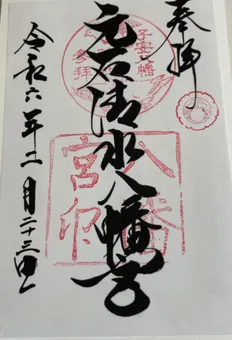 奉拝
元石清水八幡宮
子安八幡
参拝
八幡
宮印
令和六年二月二十三日